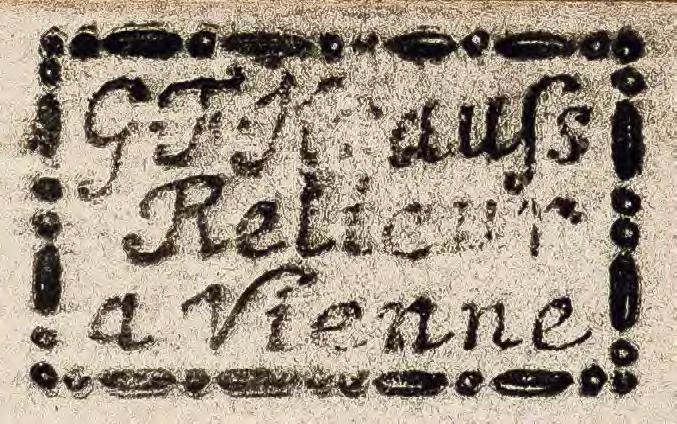 G. F. Krauſs
Relieur
a Vienne